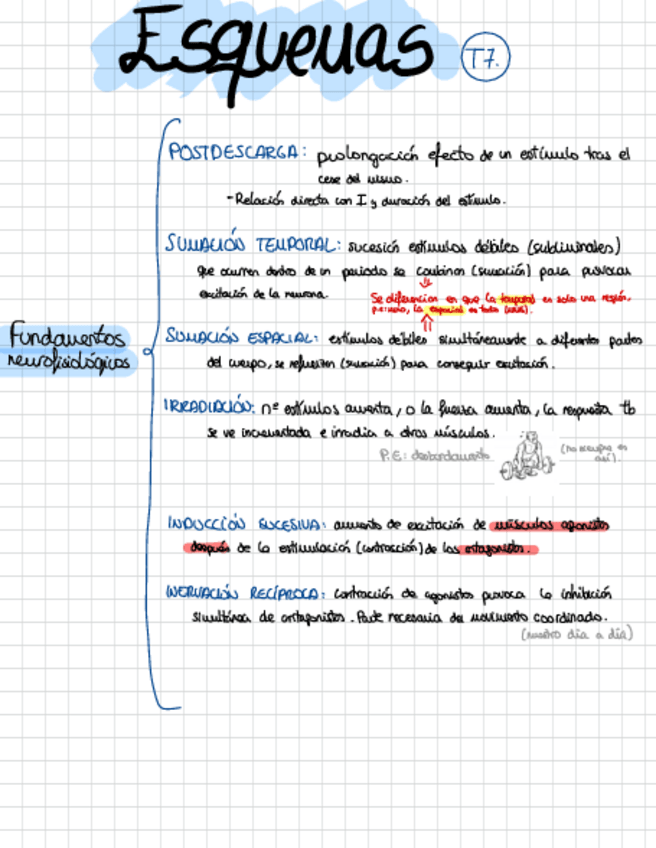 Esquemas T7.
POSTDESCARGA: prolongación efecto de un estímulo tras el
cese del mismo.
- Relación directa con I y duración del estímulo.
SUMACIÓN TEMPORAL: sucesión estímulos débiles (subliminales)
que ocurren dentro de un periodo se combinan (sumación) para provocar
excitación de la neurona.
Se diferencian en que la temporal es solo una región,
la espacial es todo
Fundamentos
neurofisiológicos
SUMACIÓN ESPACIAL: estímulos débiles simultáneamente a diferentes partes
del cuerpo, se refuerzan (sumación) para conseguir excitación.
IRRADIACIÓN: nº estímulos aumenta, o la fuerza aumenta, la respuesta tb
se ve incrementada e irradia a otros músculos.
P.E: desbordamiento (no siempre es
así).
INDUCCIÓN SUCESIVA: aumento de excitación de músculos agonistas
después de la estimulación (contracción) de los antagonistas.
INERVACIÓN RECÍPROCA: contracción de agonistas provoca la inhibición
simultánea de antagonistas. Parte necesaria del movimiento coordinado.
(nuestro día a día)